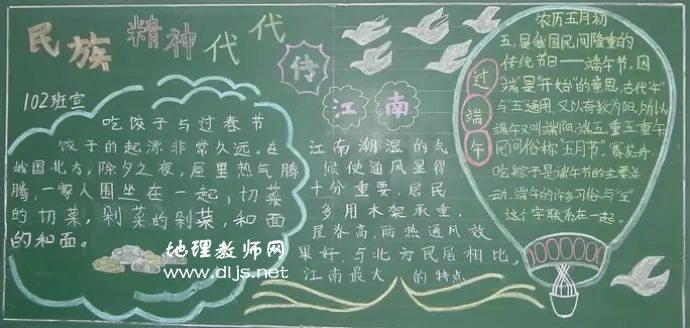 民族精神代代传
102班宣
吃饺子与过春节
饺子的起源非常久远。在
我国北方,除夕之夜,屋里热气腾
腾,一家人围坐在一起,切菜
的切菜。剁菜的剁菜,和面
的和面。
江南
江南潮湿的气
候使通风显得
十分重要,居民
多用木架承重,
屋脊高,防热通风效
果好.与北方民居相比,
江南最大的特点
过端午
农历五月初
五,是我国民间隆重的
传统节日——端午节,因
端是"开始"的意思,古代"午"
与"五"通用,又以奇数为阳,所以
端午又叫端阳、端五、重五、重午,
民间俗称"五月节"。赛龙舟、
吃粽子是端午节的主要活
动.端午的许多习俗与"五"
这个字联系在一起。
地理教师网
www.dljs.net